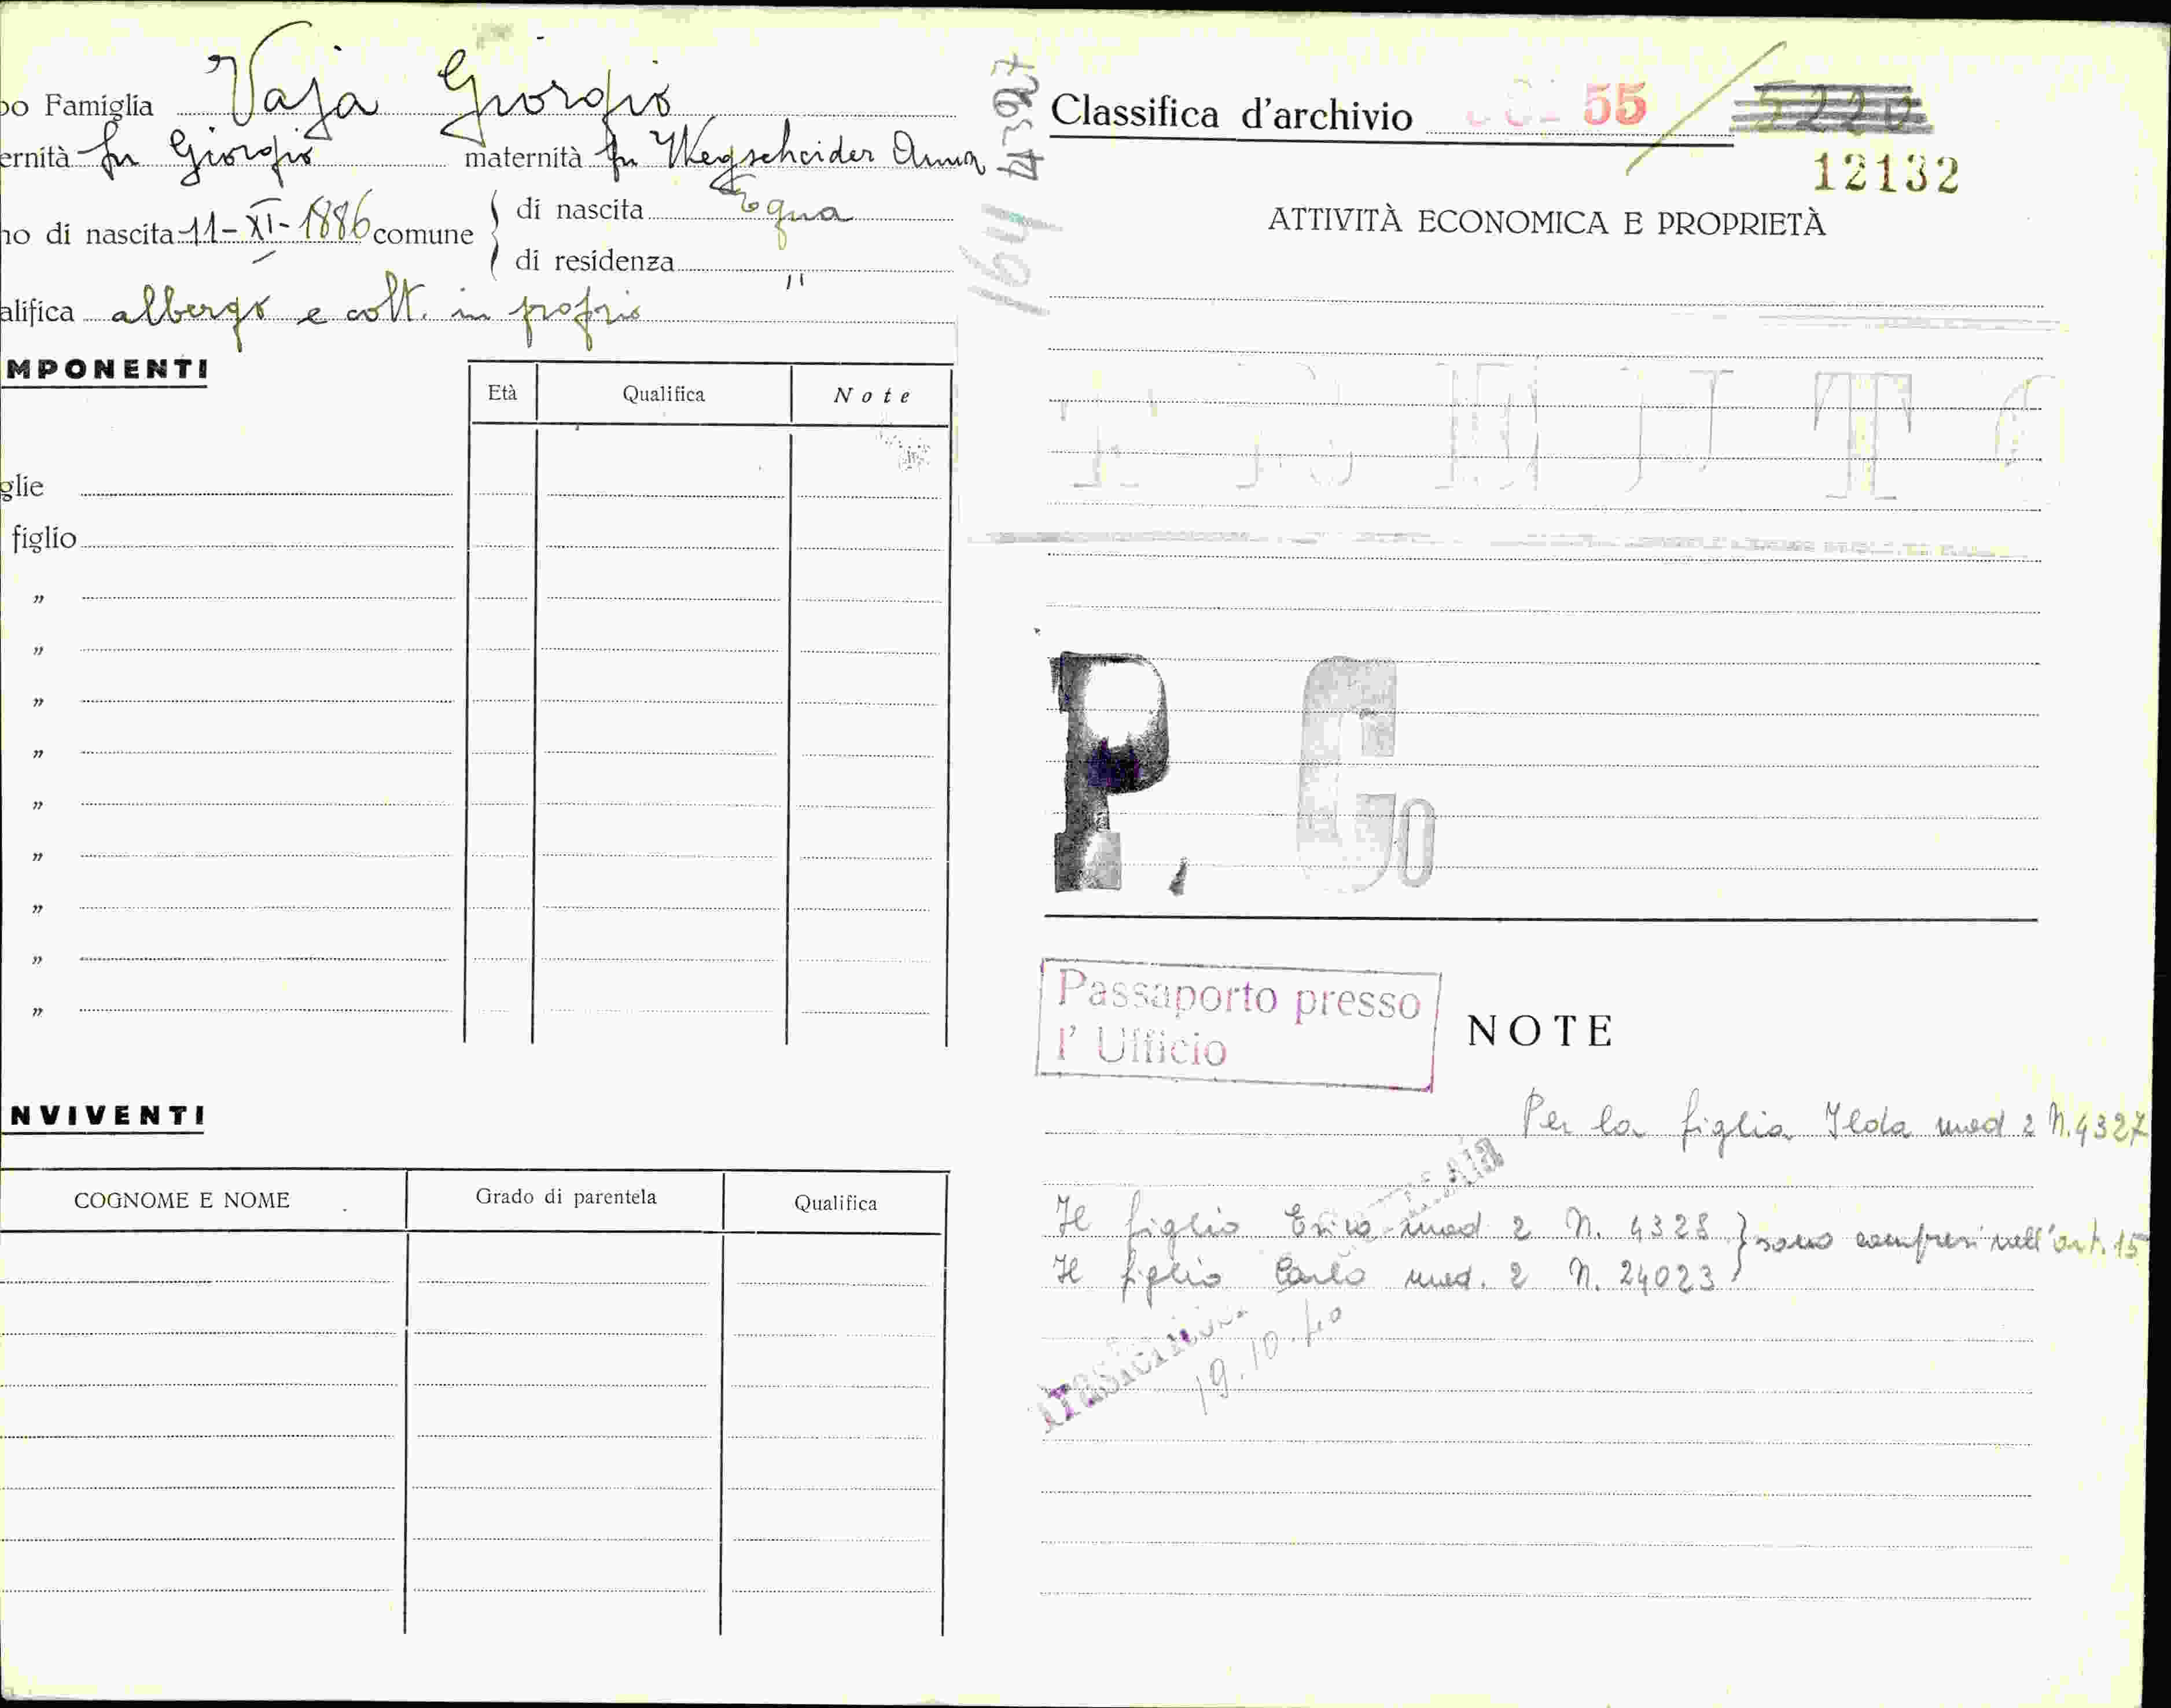 po Famiglia Vaja Giorgio
ernità fu Giorgio maternità fu Wegscheider Anna
no di nascita 11-XI-1886 comune di nascita Egna
di residenza "
alifica albergo e colt. in proprio
MPONENTI
Età Qualifica Note
glie
figlio
"
"
"
"
"
"
"
"
"
NVIVENTI
COGNOME E NOME Grado di parentela Qualifica
164
Classifica d'archivio 55
12132
ATTIVITÀ ECONOMICA E PROPRIETÀ
P. G
Passaporto presso
l' Ufficio
NOTE
Per la figlia Ilda mod 2 N. 4327
Il figlio Erico mod 2 N. 4328 } sono compresi nell'art. 15
Il figlio Carlo mod. 2 N. 24023
19.10.40